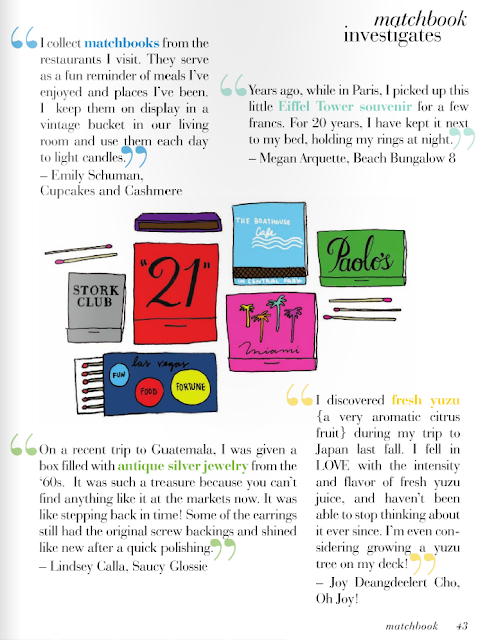 matchbook
investigates
“I collect matchbooks from the
restaurants I visit. They serve
as a fun reminder of meals I’ve
enjoyed and places I’ve been.
I keep them on display in a
vintage bucket in our living
room and use them each day
to light candles.”
– Emily Schuman,
Cupcakes and Cashmere
“Years ago, while in Paris, I picked up this
little Eiffel Tower souvenir for a few
francs. For 20 years, I have kept it next
to my bed, holding my rings at night.”
– Megan Arquette, Beach Bungalow 8
STORK
CLUB
"21"
THE BOATHOUSE
Cafe
IN CENTRAL PARK
Paolo's
miami
las vegas
FUN
FOOD
FORTUNE
“On a recent trip to Guatemala, I was given a
box filled with antique silver jewelry from the
‘60s. It was such a treasure because you can’t
find anything like it at the markets now. It was
like stepping back in time! Some of the earrings
still had the original screw backings and shined
like new after a quick polishing.”
– Lindsey Calla, Saucy Glossie
“I discovered fresh yuzu
{a very aromatic citrus
fruit} during my trip to
Japan last fall. I fell in
LOVE with the intensity
and flavor of fresh yuzu
juice, and haven’t been
able to stop thinking about
it ever since. I’m even con-
sidering growing a yuzu
tree on my deck!”
– Joy Deangdeelert Cho,
Oh Joy!
matchbook 43